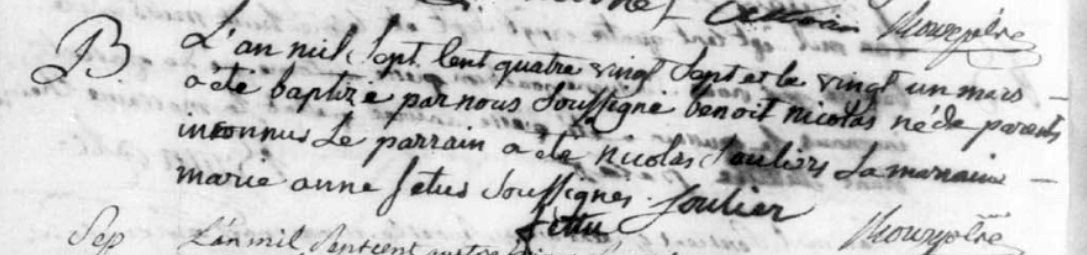 B L'an mil Sept Cent quatre vingt Sept et le vingt un mars
a ete baptizé par nous Soussigné benoit nicolas né de parents
inconnus Le parrain a ete nicolas Souliers La marraine
marie anne fetus Soussignes. Soulier
fettu
Sep L'an mil Sept cent